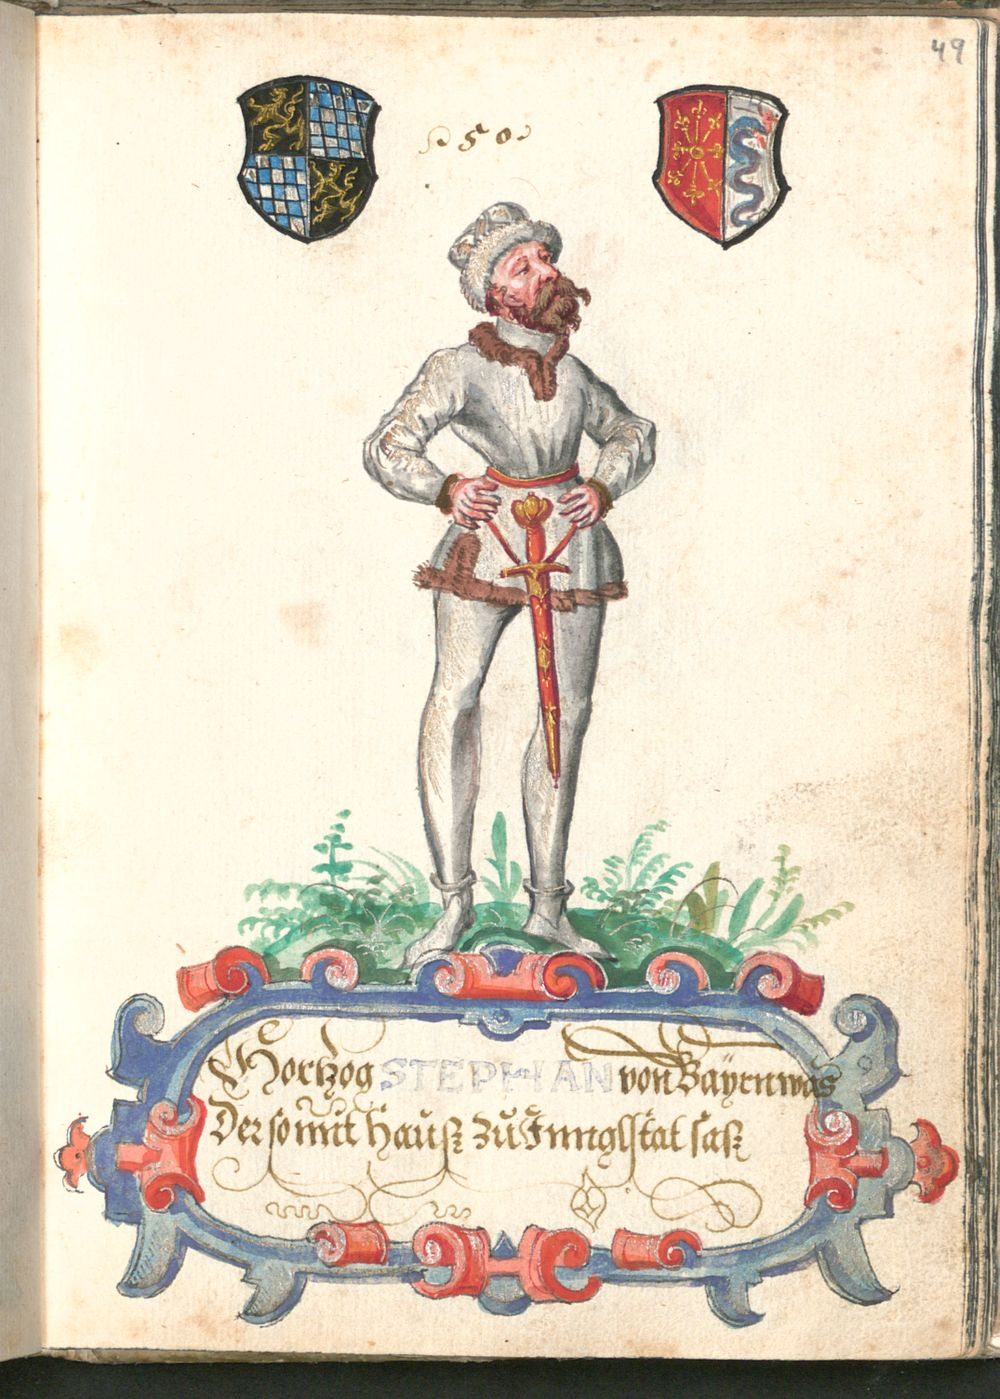 49
50
Hertzog STEPHAN von Baÿrn was
Der so mit Hauß zu Innglstat saß